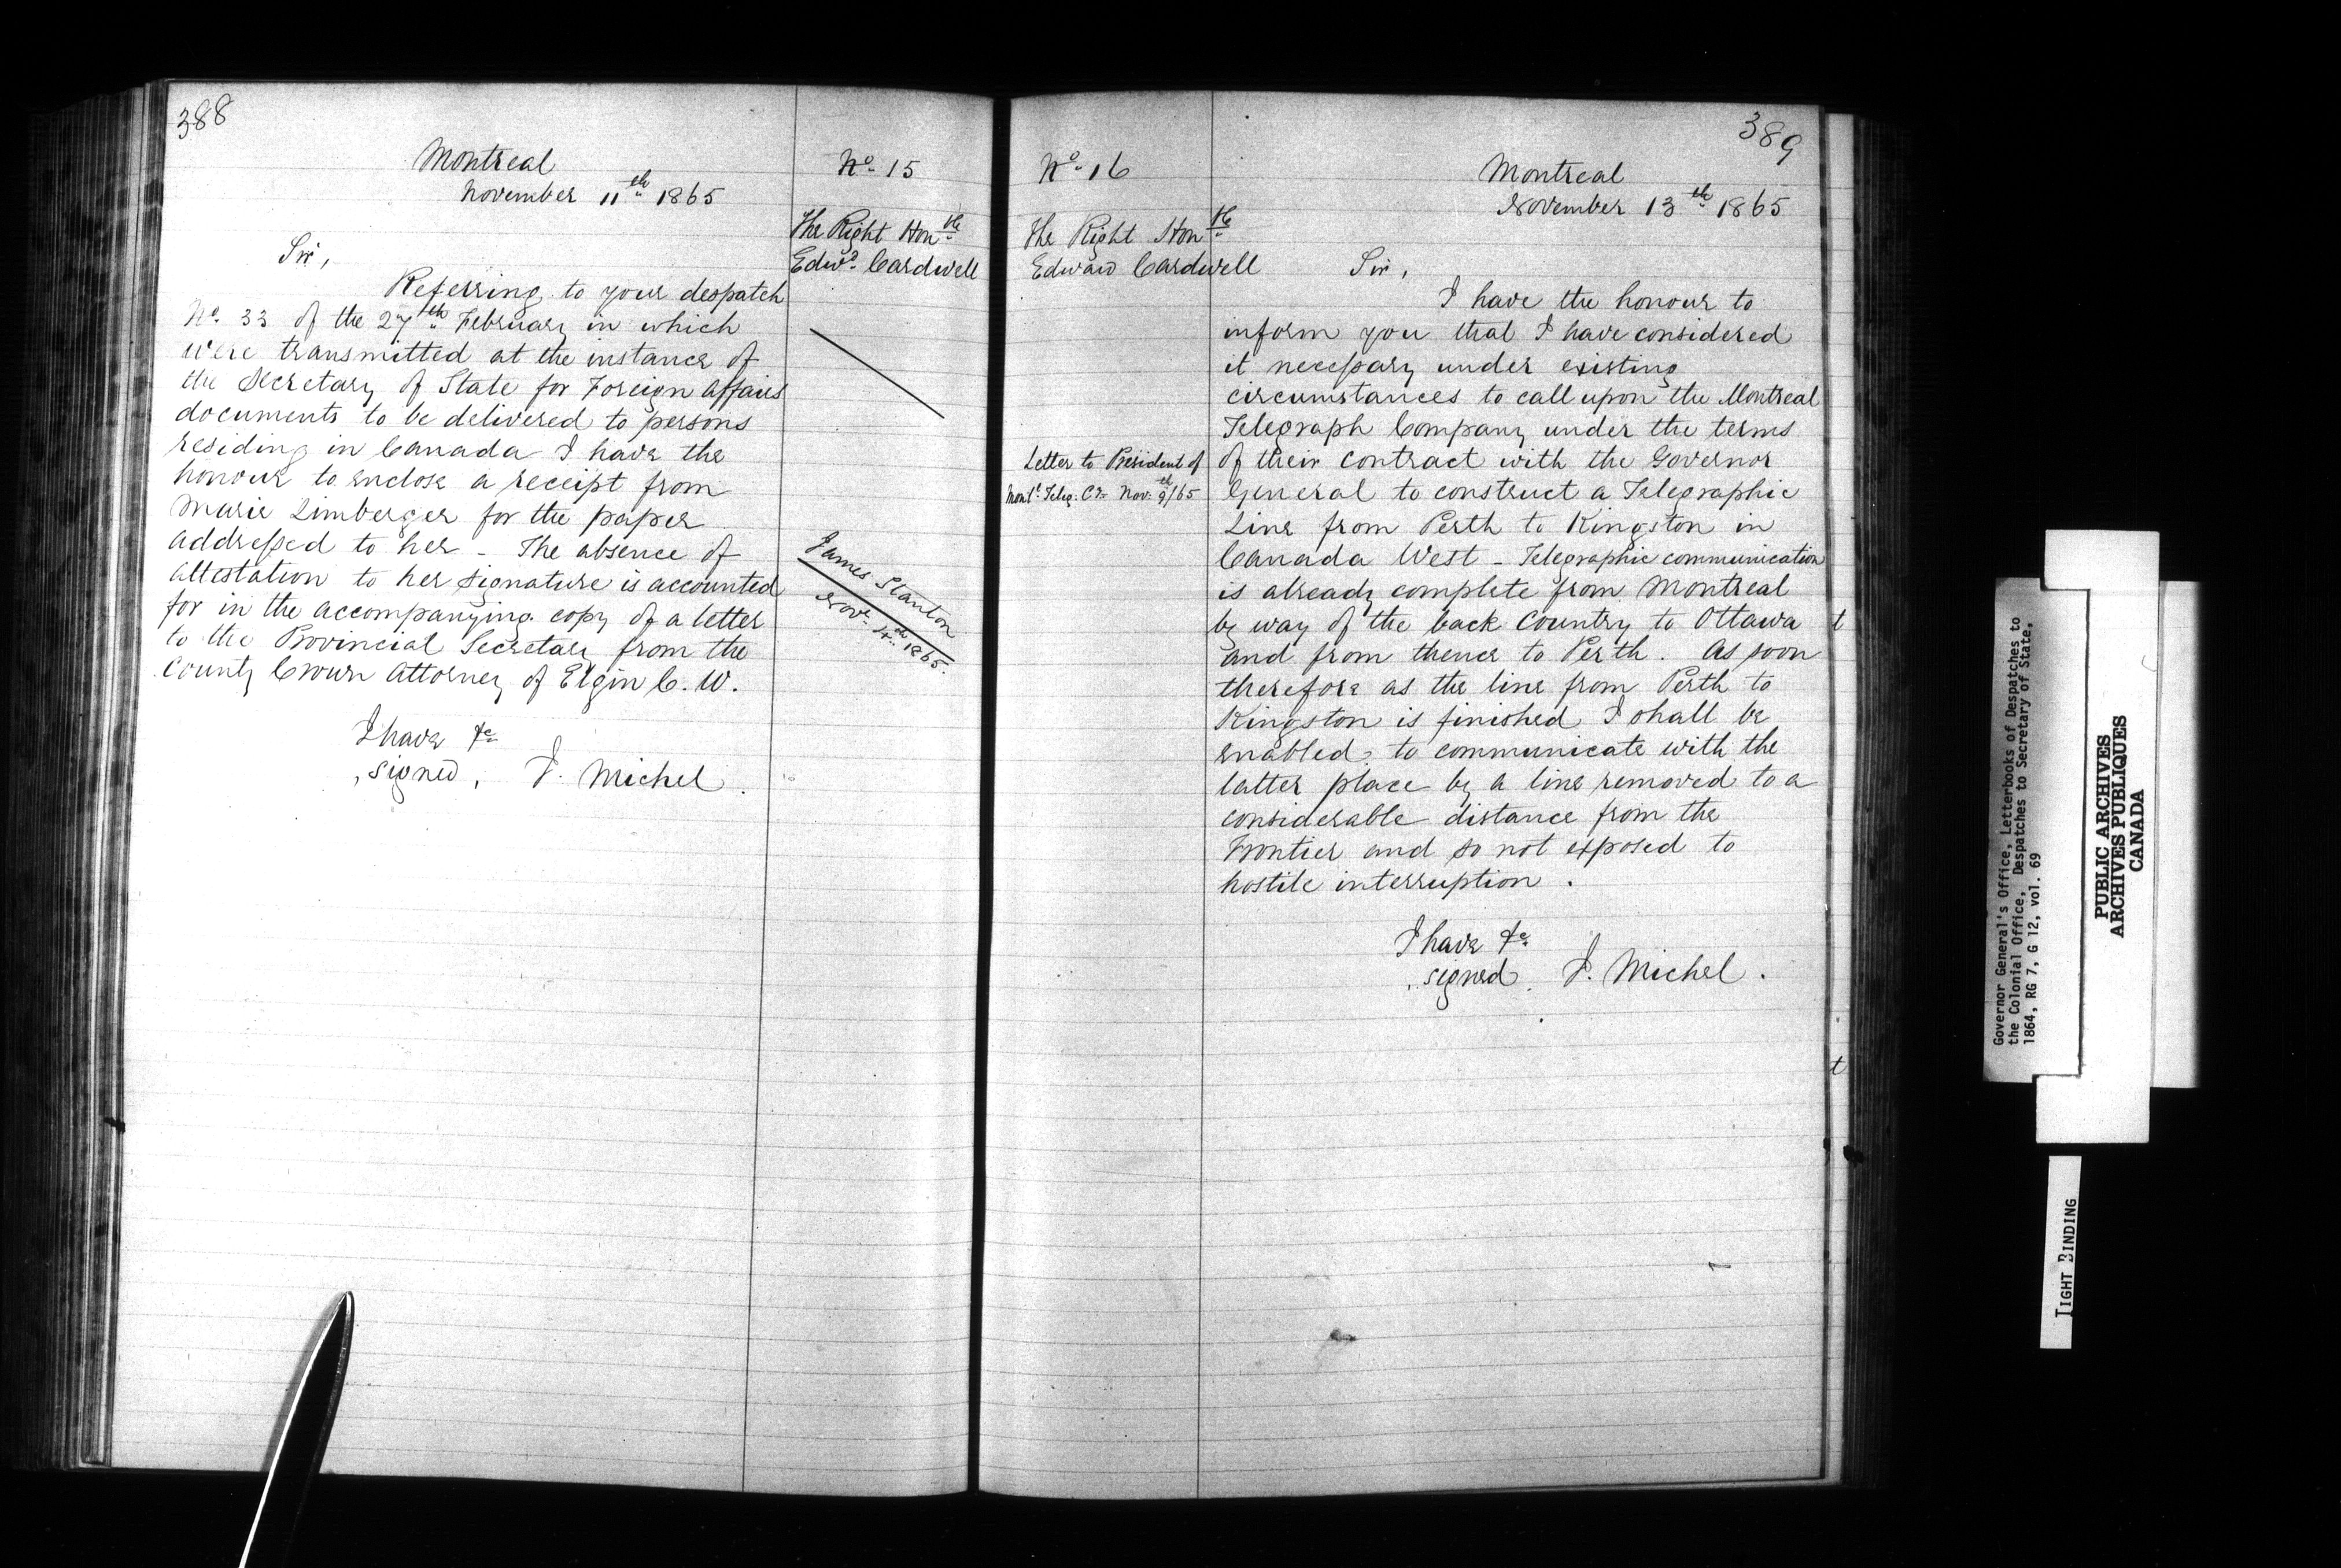 388
Montreal
November 11th 1865
No. 15
The Right Honble
Edwd. Cardwell
Sir,
Referring to your despatch
No. 33 of the 27th February in which
were transmitted at the instance of
the Secretary of State for Foreign Affairs
documents to be delivered to persons
residing in Canada I have the
honour to enclose a receipt from
Marie Limberger for the paper
addressed to her - The absence of
attestation to her signature is accounted
for in the accompanying copy of a letter
to the Provincial Secretary from the
County Crown Attorney of Elgin C. W.
James Stanton
Novr. 4th 1865.
I have &c
signed, J. Michel.
389
No. 16
Montreal
November 13th 1865
The Right Honble
Edward Cardwell
Sir,
I have the honour to
inform you that I have considered
it necessary under existing
circumstances to call upon the Montreal
Telegraph Company under the terms
of their contract with the Governor
General to construct a Telegraphic
Line from Perth to Kingston in
Canada West - Telegraphic communication
is already complete from Montreal
by way of the back Country to Ottawa
and from thence to Perth. As soon
therefore as the line from Perth to
Kingston is finished I shall be
enabled to communicate with the
latter place by a line removed to a
considerable distance from the
Frontier and so not exposed to
hostile interruption.
Letter to President of
Montl. Teleg. Co. Nov. 9th/65
I have &c
signed. J. Michel.
t
t
Governor General's Office, Letterbooks of Despatches to
the Colonial Office, Despatches to Secretary of State,
1864, RG 7, G 12, vol. 69
PUBLIC ARCHIVES
ARCHIVES PUBLIQUES
CANADA
TIGHT BINDING